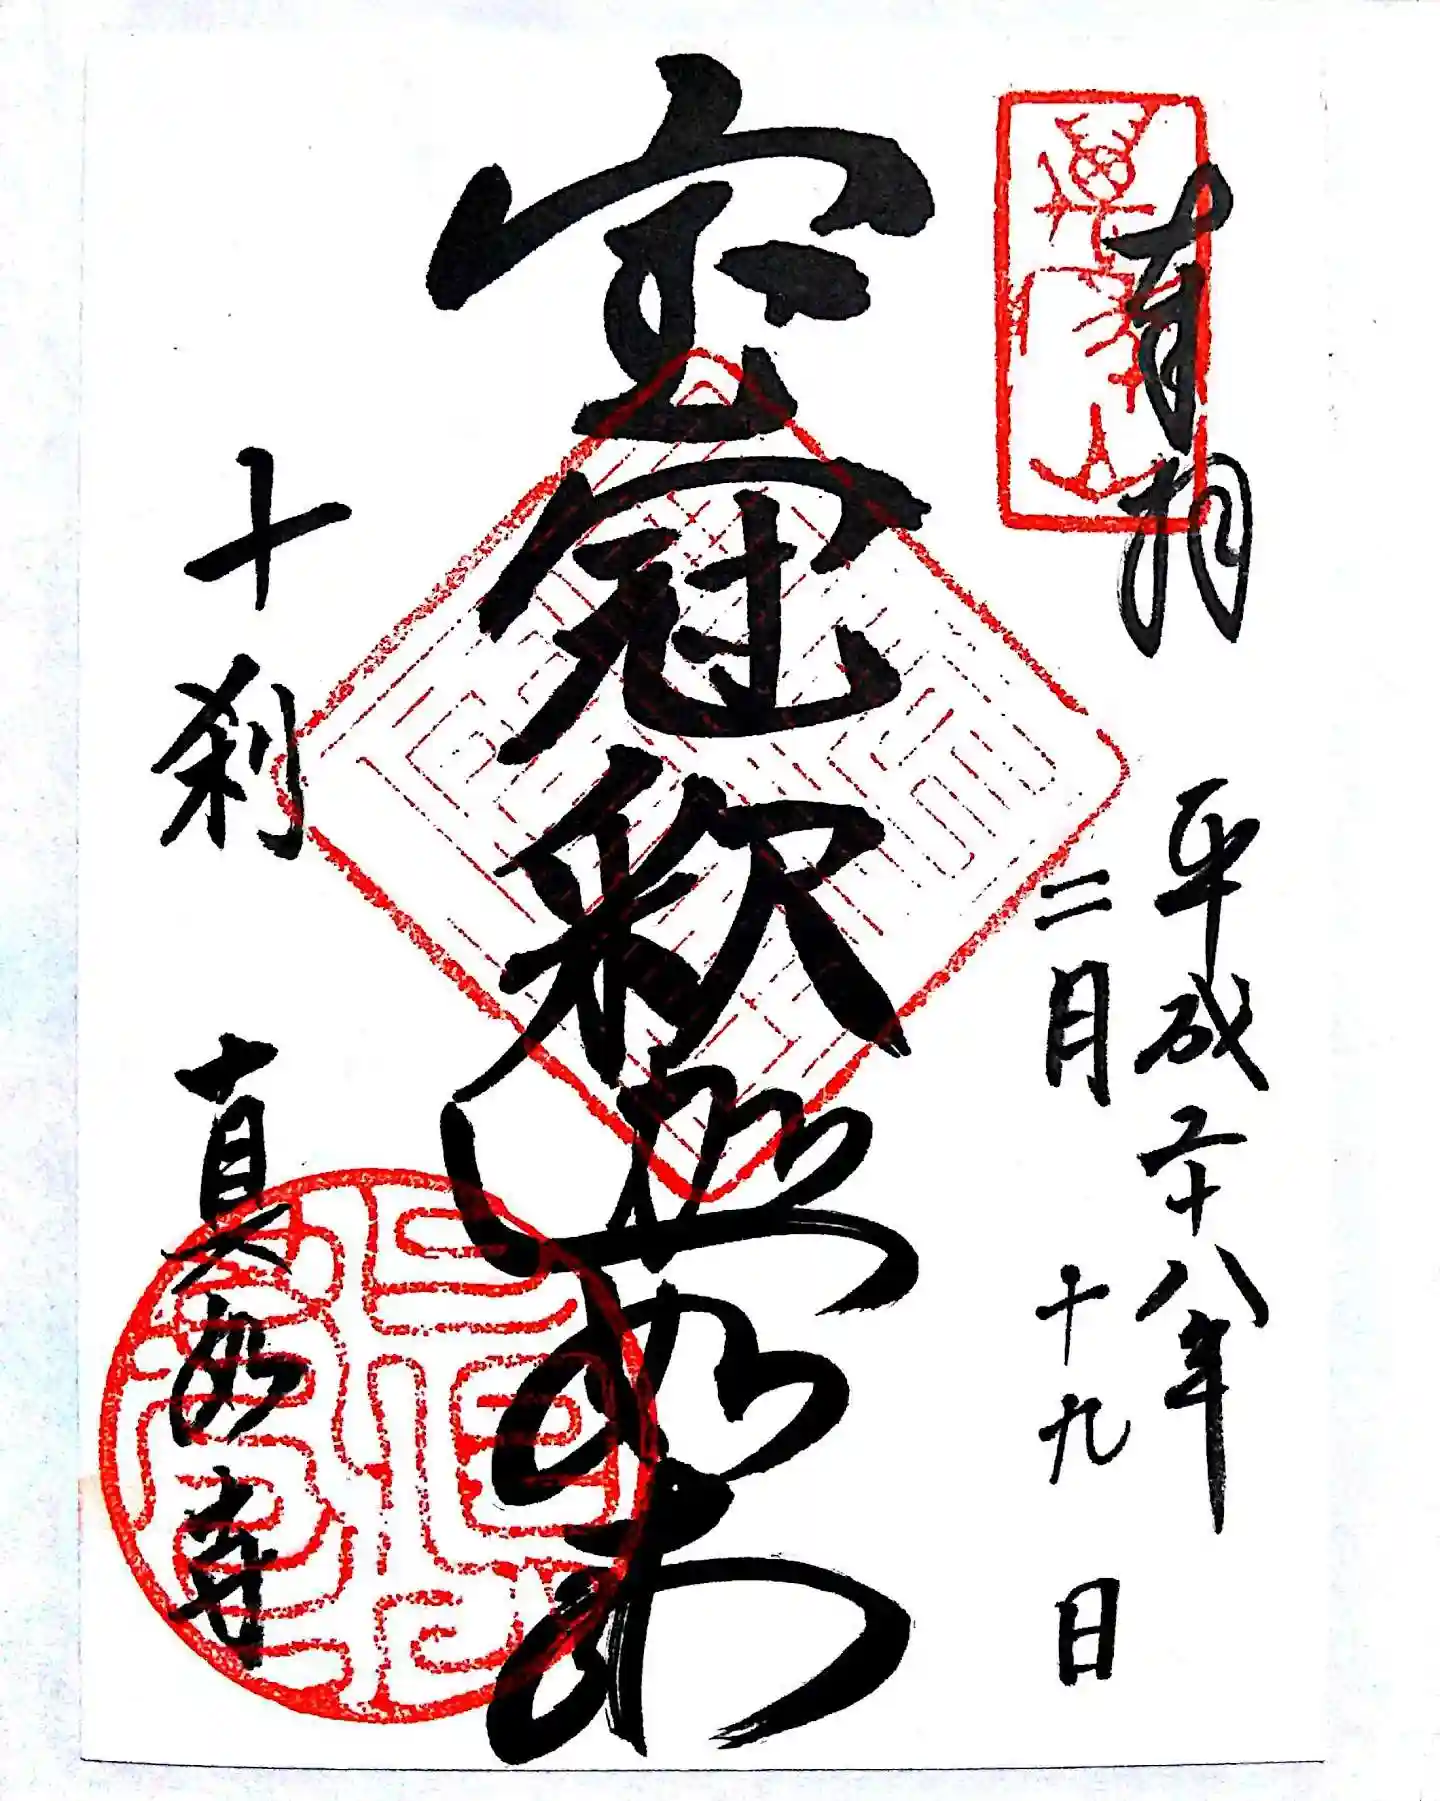 奉拝
平成二十八年
二月十九日
宝冠釈迦如来
十刹 真如寺
萬年山